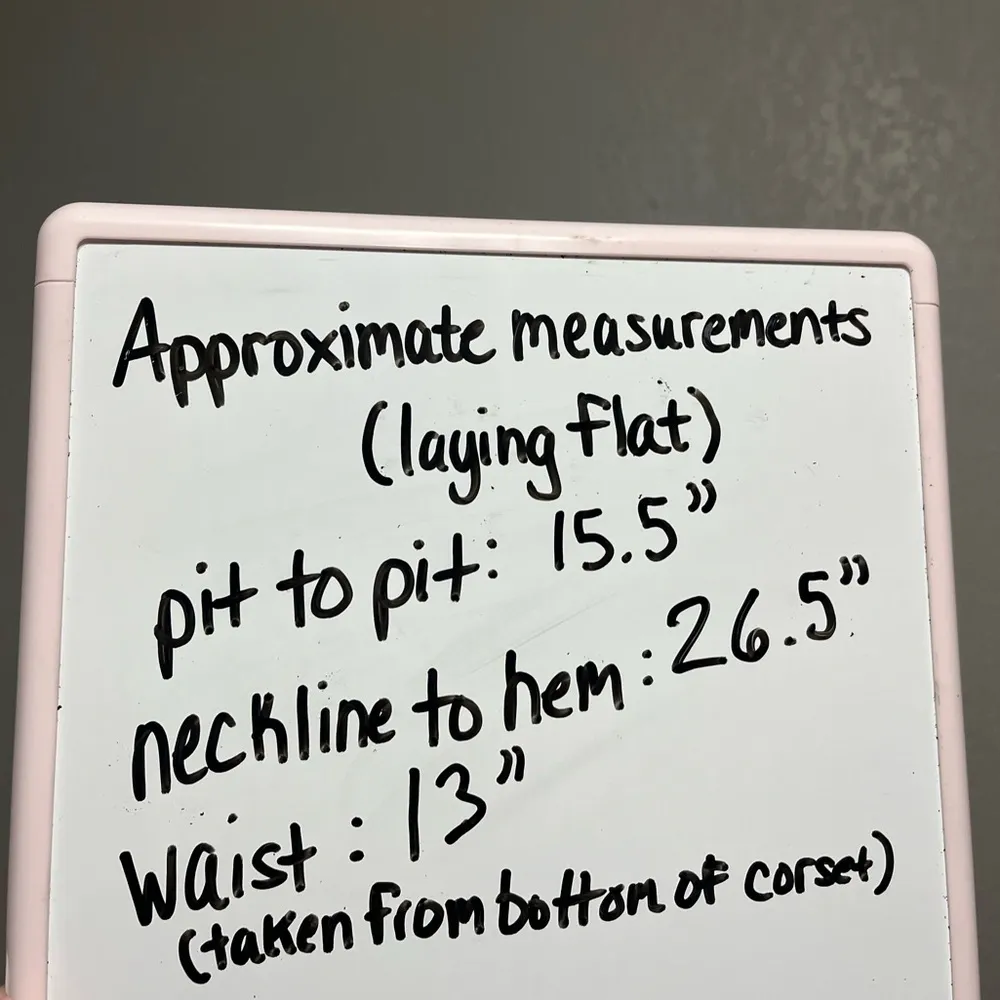 Approximate measurements
(laying flat)
pit to pit: 15.5"
neckline to hem: 26.5"
waist: 13"
(taken from bottom of corset)